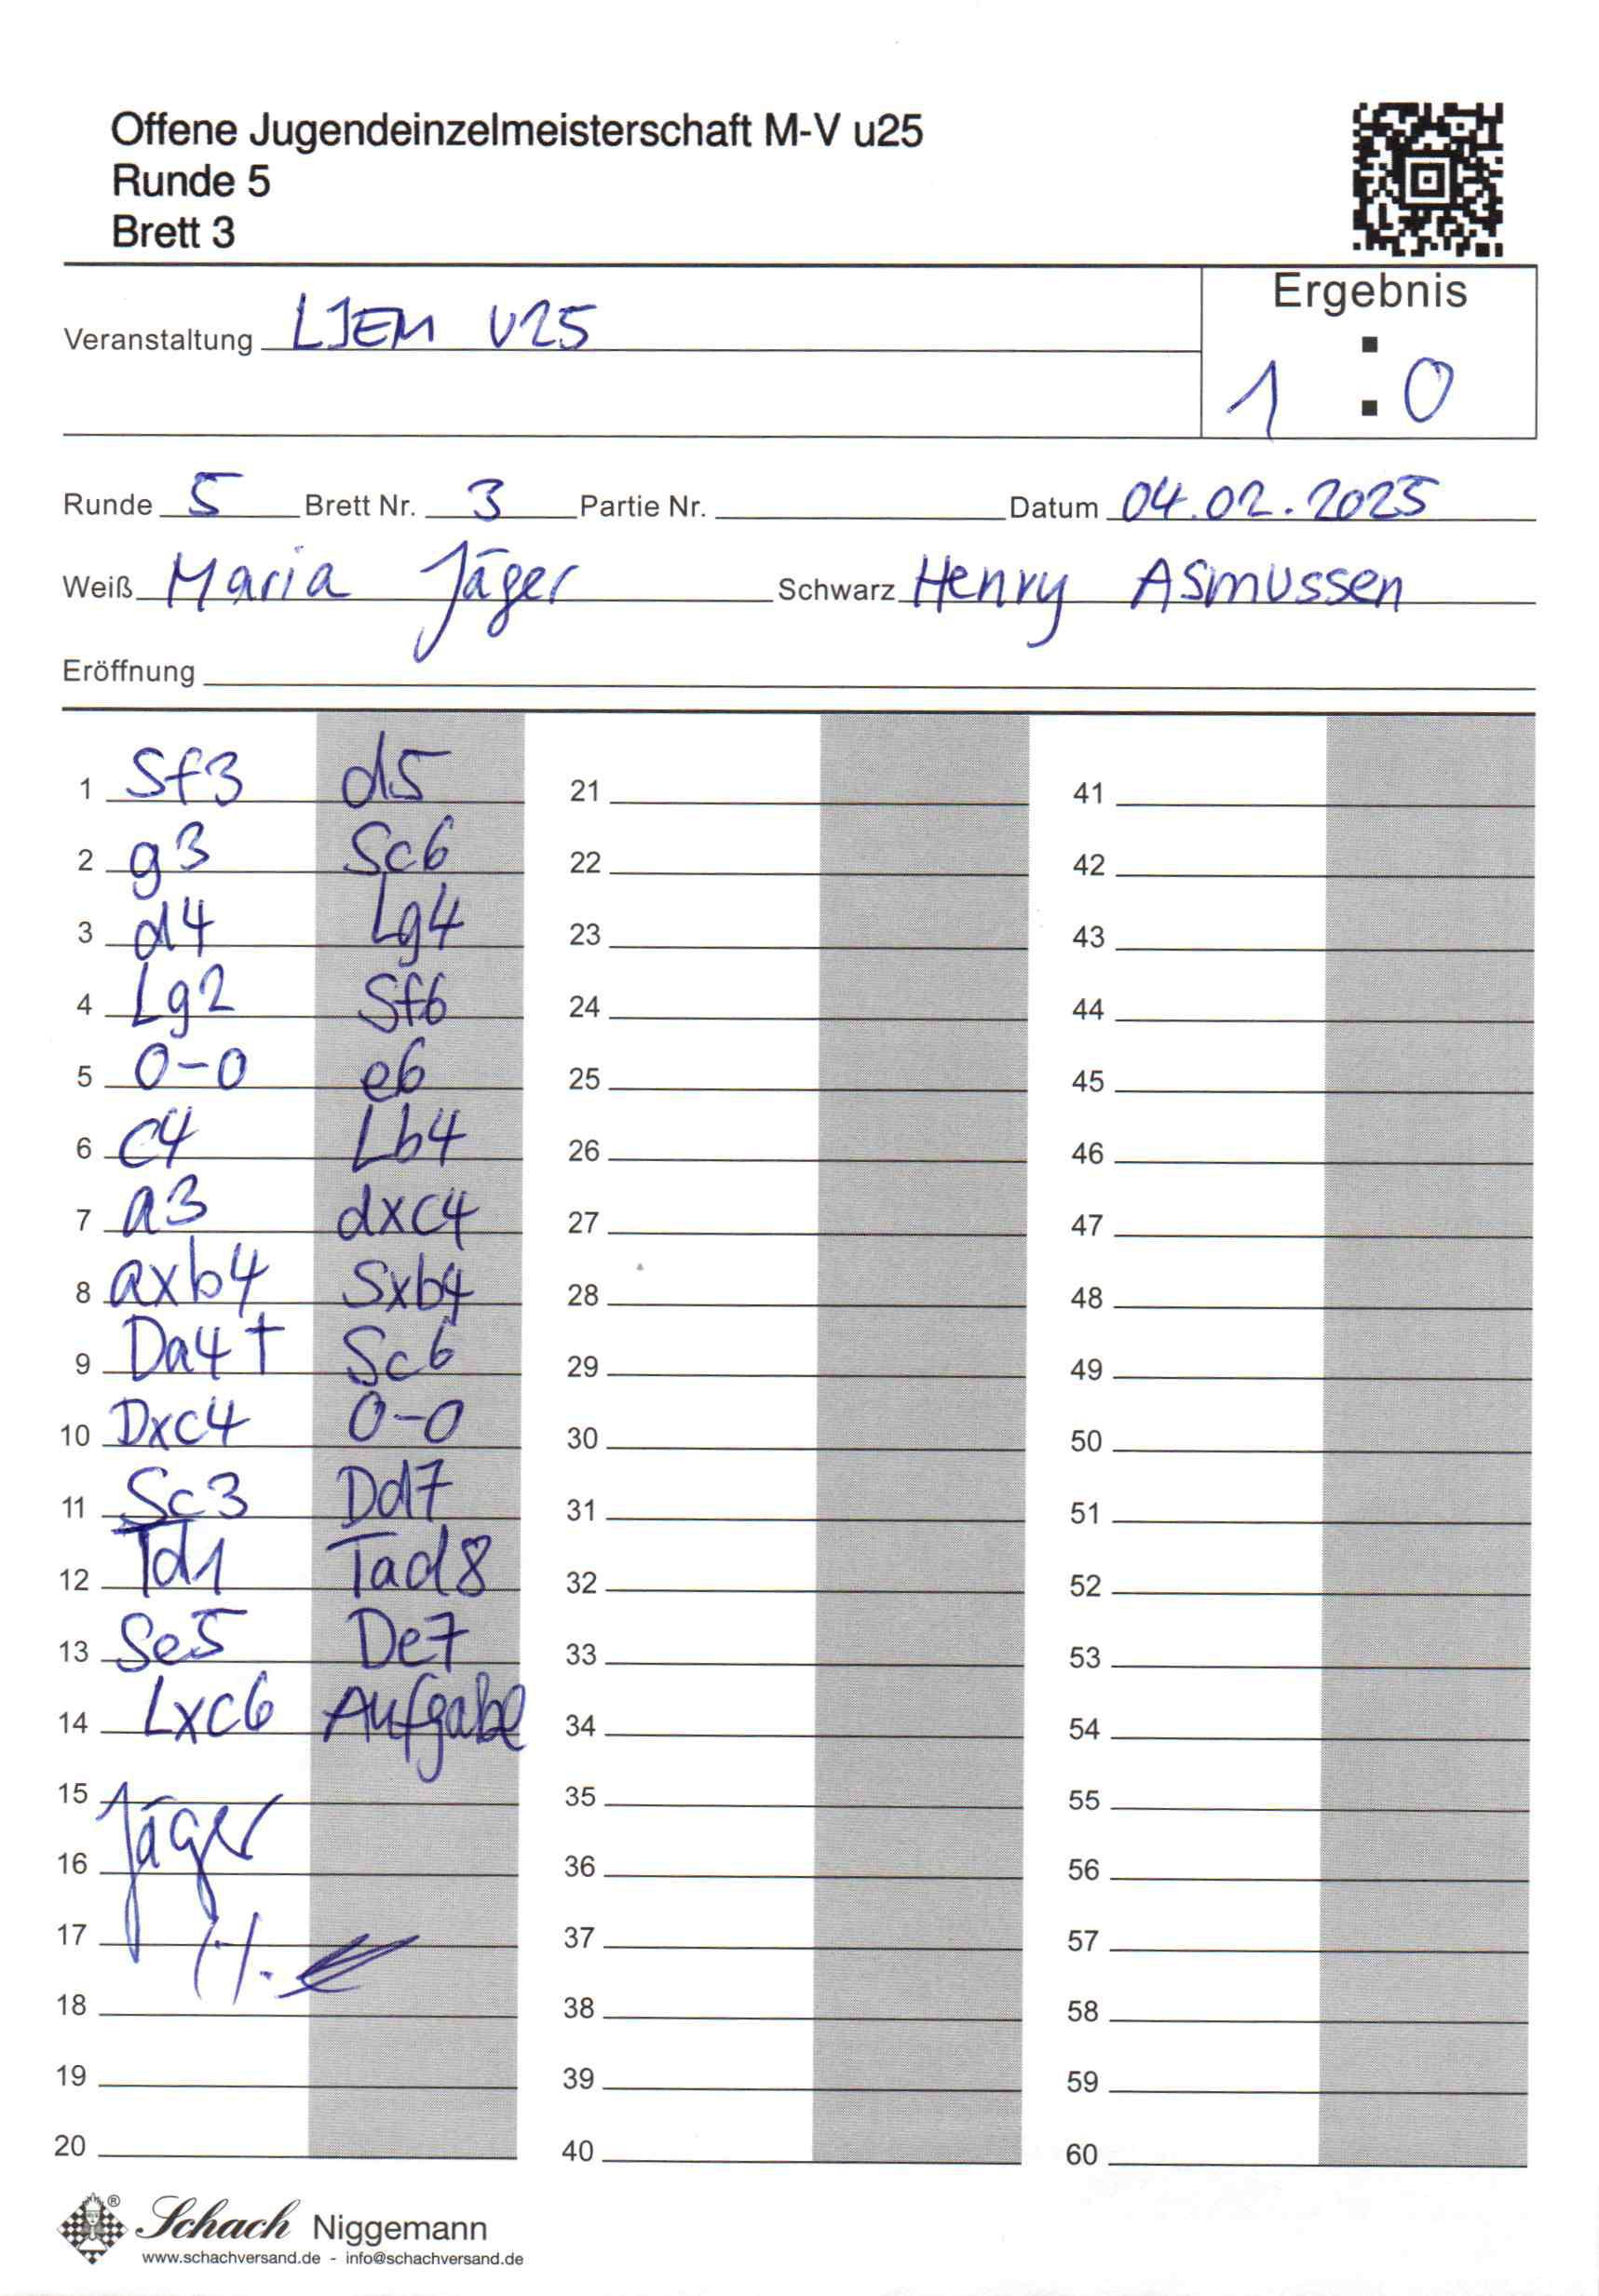 Offene Jugendeinzelmeisterschaft M-V u25
Runde 5
Brett 3
Ergebnis
Veranstaltung LJEM U25
1 : 0
Runde 5 Brett Nr. 3 Partie Nr. Datum 04.02.2025
Weiß Maria Jäger Schwarz Henry Asmussen
Eröffnung
1 Sf3 d5 21 41
2 g3 Sc6 22 42
3 d4 Lg4 23 43
4 Lg2 Sf6 24 44
5 0-0 e6 25 45
6 c4 Lb4 26 46
7 a3 dxc4 27 47
8 axb4 Sxb4 28 48
9 Da4† Sc6 29 49
10 Dxc4 0-0 30 50
11 Sc3 Dd7 31 51
12 Td1 Tad8 32 52
13 Se5 De7 33 53
14 Lxc6 Aufgabe 34 54
15 35 55
Jäger
16 36 56
17 37 57
18 38 58
19 39 59
20 40 60
® Schach Niggemann
www.schachversand.de - info@schachversand.de